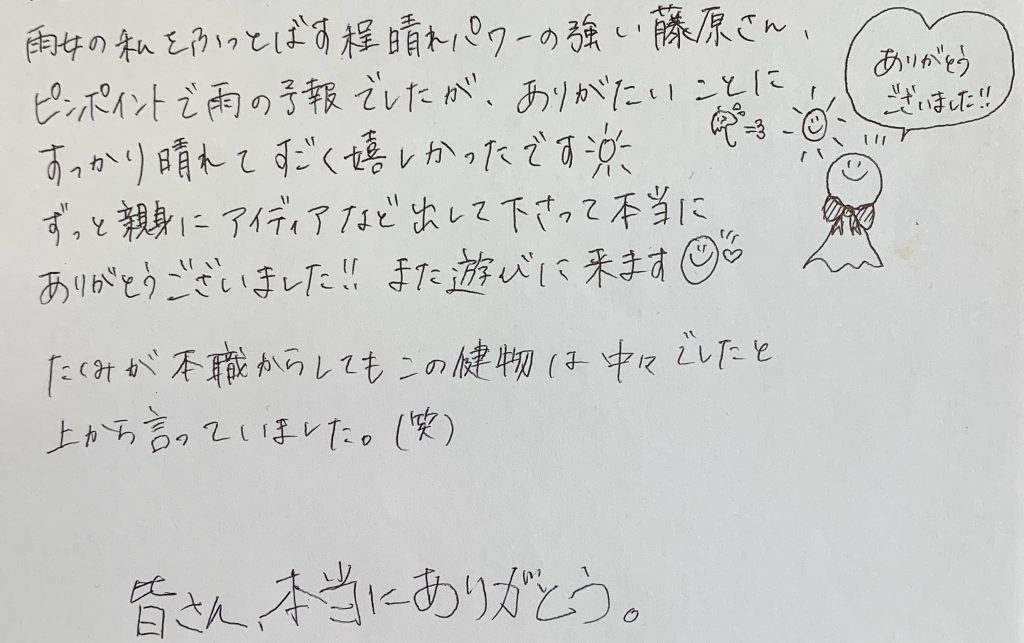 雨女の私をふっとばす程晴れパワーの強い藤原さん、
ピンポイントで雨の予報でしたが、ありがたいことに
すっかり晴れてすごく嬉しかったです
ずっと親身にアイディアなど出して下さって本当に
ありがとうございました!! また遊びに来ます
ありがとう
ございました!!
たくみが本職からしてもこの健物は中々でしたと
上から言っていました。(笑)
皆さん、本当にありがとう。